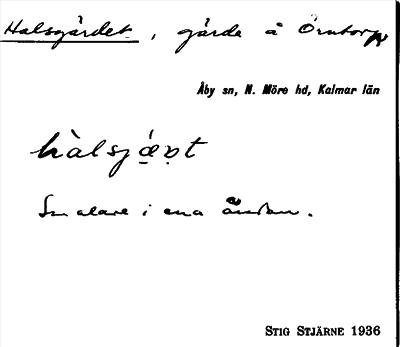 Halsgärdet, gärde å Örntorp
Åby sn, N. Möre hd, Kalmar län
hàlsjǽ̣ṛt
Smalare i ena ändan.
STIG STJÄRNE 1936